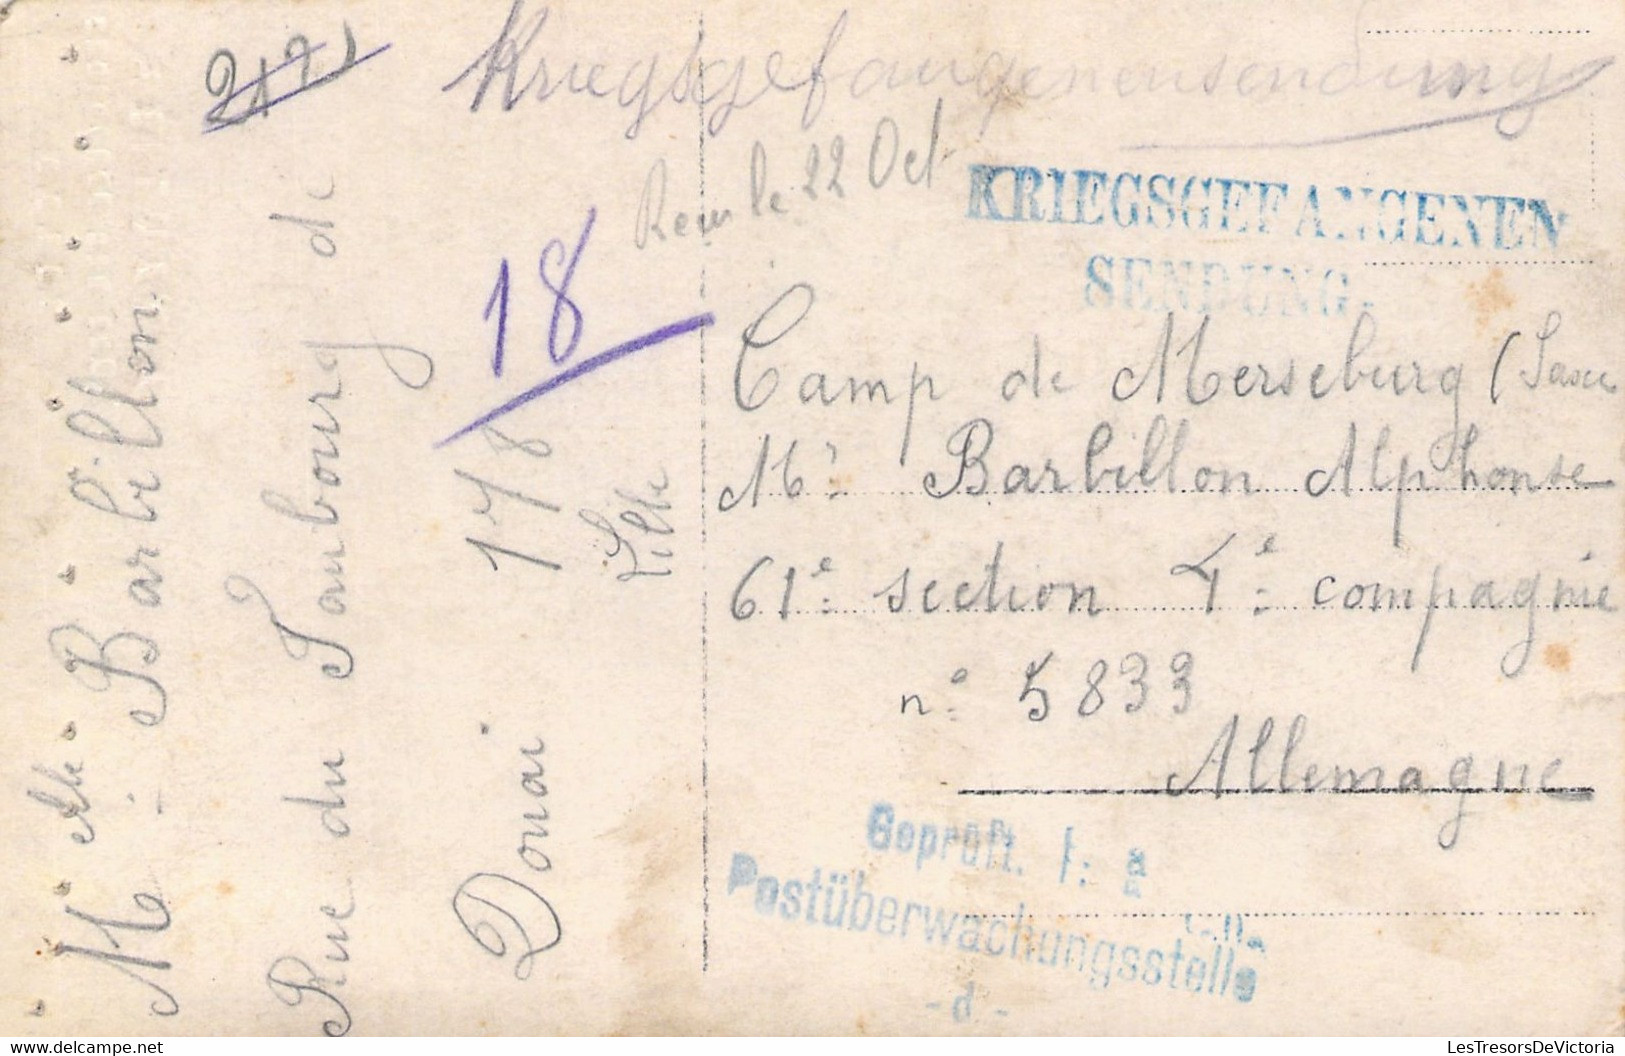 2171
Kriegsgefangenensendung
Reçu le 22 Oct
KRIEGSGEFANGENEN
SENDUNG.
18
M. Barbillon
Rue du Faubourg de
178
Lille
Douai
Camp de Merseburg (Saxe
Mr. Barbillon Alphonse
61e section 4e compagnie
n° 5833
Allemagne
Geprüft. f: a
Postüberwachungsstelle
- d -
LesTresorsDeVictoria.com
LesTresorsDeVictoria